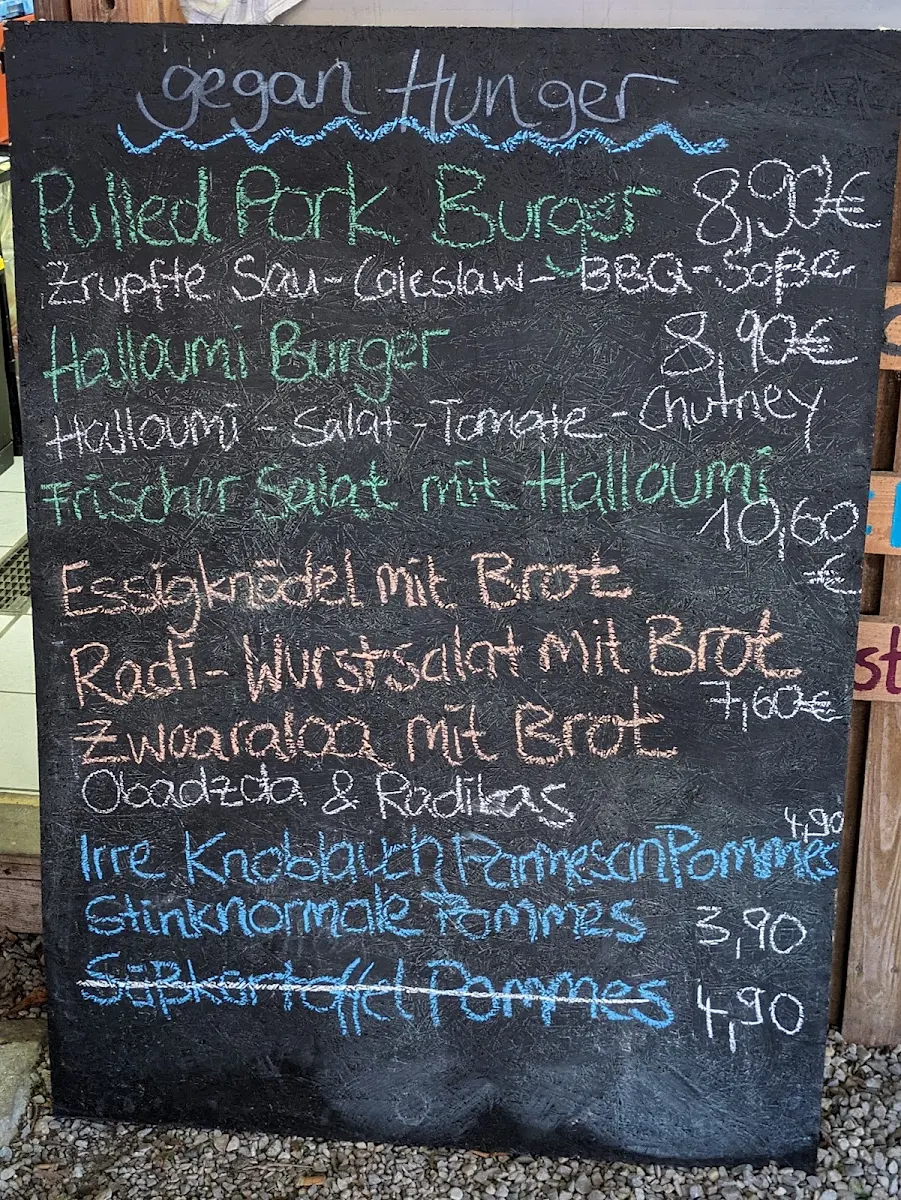 gegan Hunger
Pulled Pork Burger 8,90€
Zrupfte Sau-Coleslaw-BBQ-Soße
Halloumi Burger 8,90€
Halloumi-Salat-Tomate-Chutney
Frischer Salat mit Halloumi
10,60
€
Essigknödel mit Brot
Radi-Wurstsalat mit Brot
7,60€
Zwoaraloa mit Brot
Obadzda & Radikas
4,90
Irre Knoblauch Parmesan Pommes
Stinknormale Pommes 3,90
Süßkartoffel Pommes 4,90
st